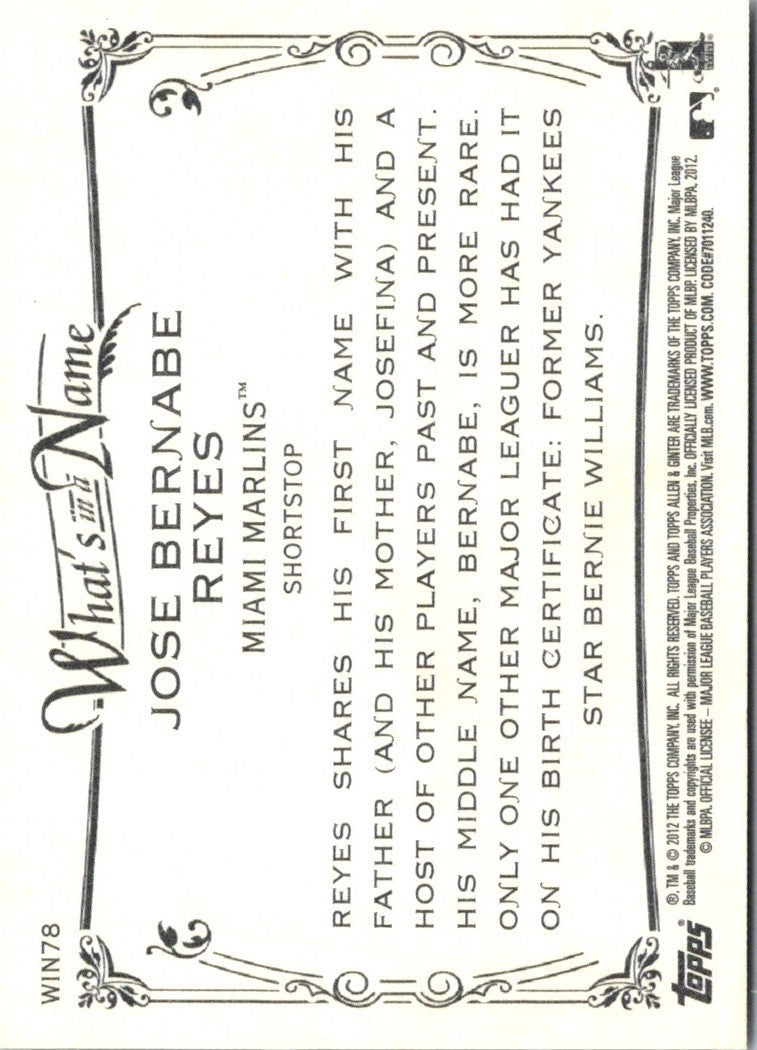 WIN78
What's in a Name
JOSE BERNABE
REYES
MIAMI MARLINS™
SHORTSTOP
REYES SHARES HIS FIRST NAME WITH HIS
FATHER (AND HIS MOTHER, JOSEFINA) AND A
HOST OF OTHER PLAYERS PAST AND PRESENT.
HIS MIDDLE NAME, BERNABE, IS MORE RARE.
ONLY ONE OTHER MAJOR LEAGUER HAS HAD IT
ON HIS BIRTH CERTIFICATE: FORMER YANKEES
STAR BERNIE WILLIAMS.
topps®
®, TM & © 2012 THE TOPPS COMPANY, INC. ALL RIGHTS RESERVED. TOPPS AND TOPPS ALLEN & GINTER ARE TRADEMARKS OF THE TOPPS COMPANY, INC. Major League
Baseball trademarks and copyrights are used with permission of Major League Baseball Properties, Inc. OFFICIALLY LICENSED PRODUCT OF MLBP. LICENSED BY MLBPA, 2012.
© MLBPA. OFFICIAL LICENSEE – MAJOR LEAGUE BASEBALL PLAYERS ASSOCIATION. Visit MLB.com. WWW.TOPPS.COM. CODE#7011240.